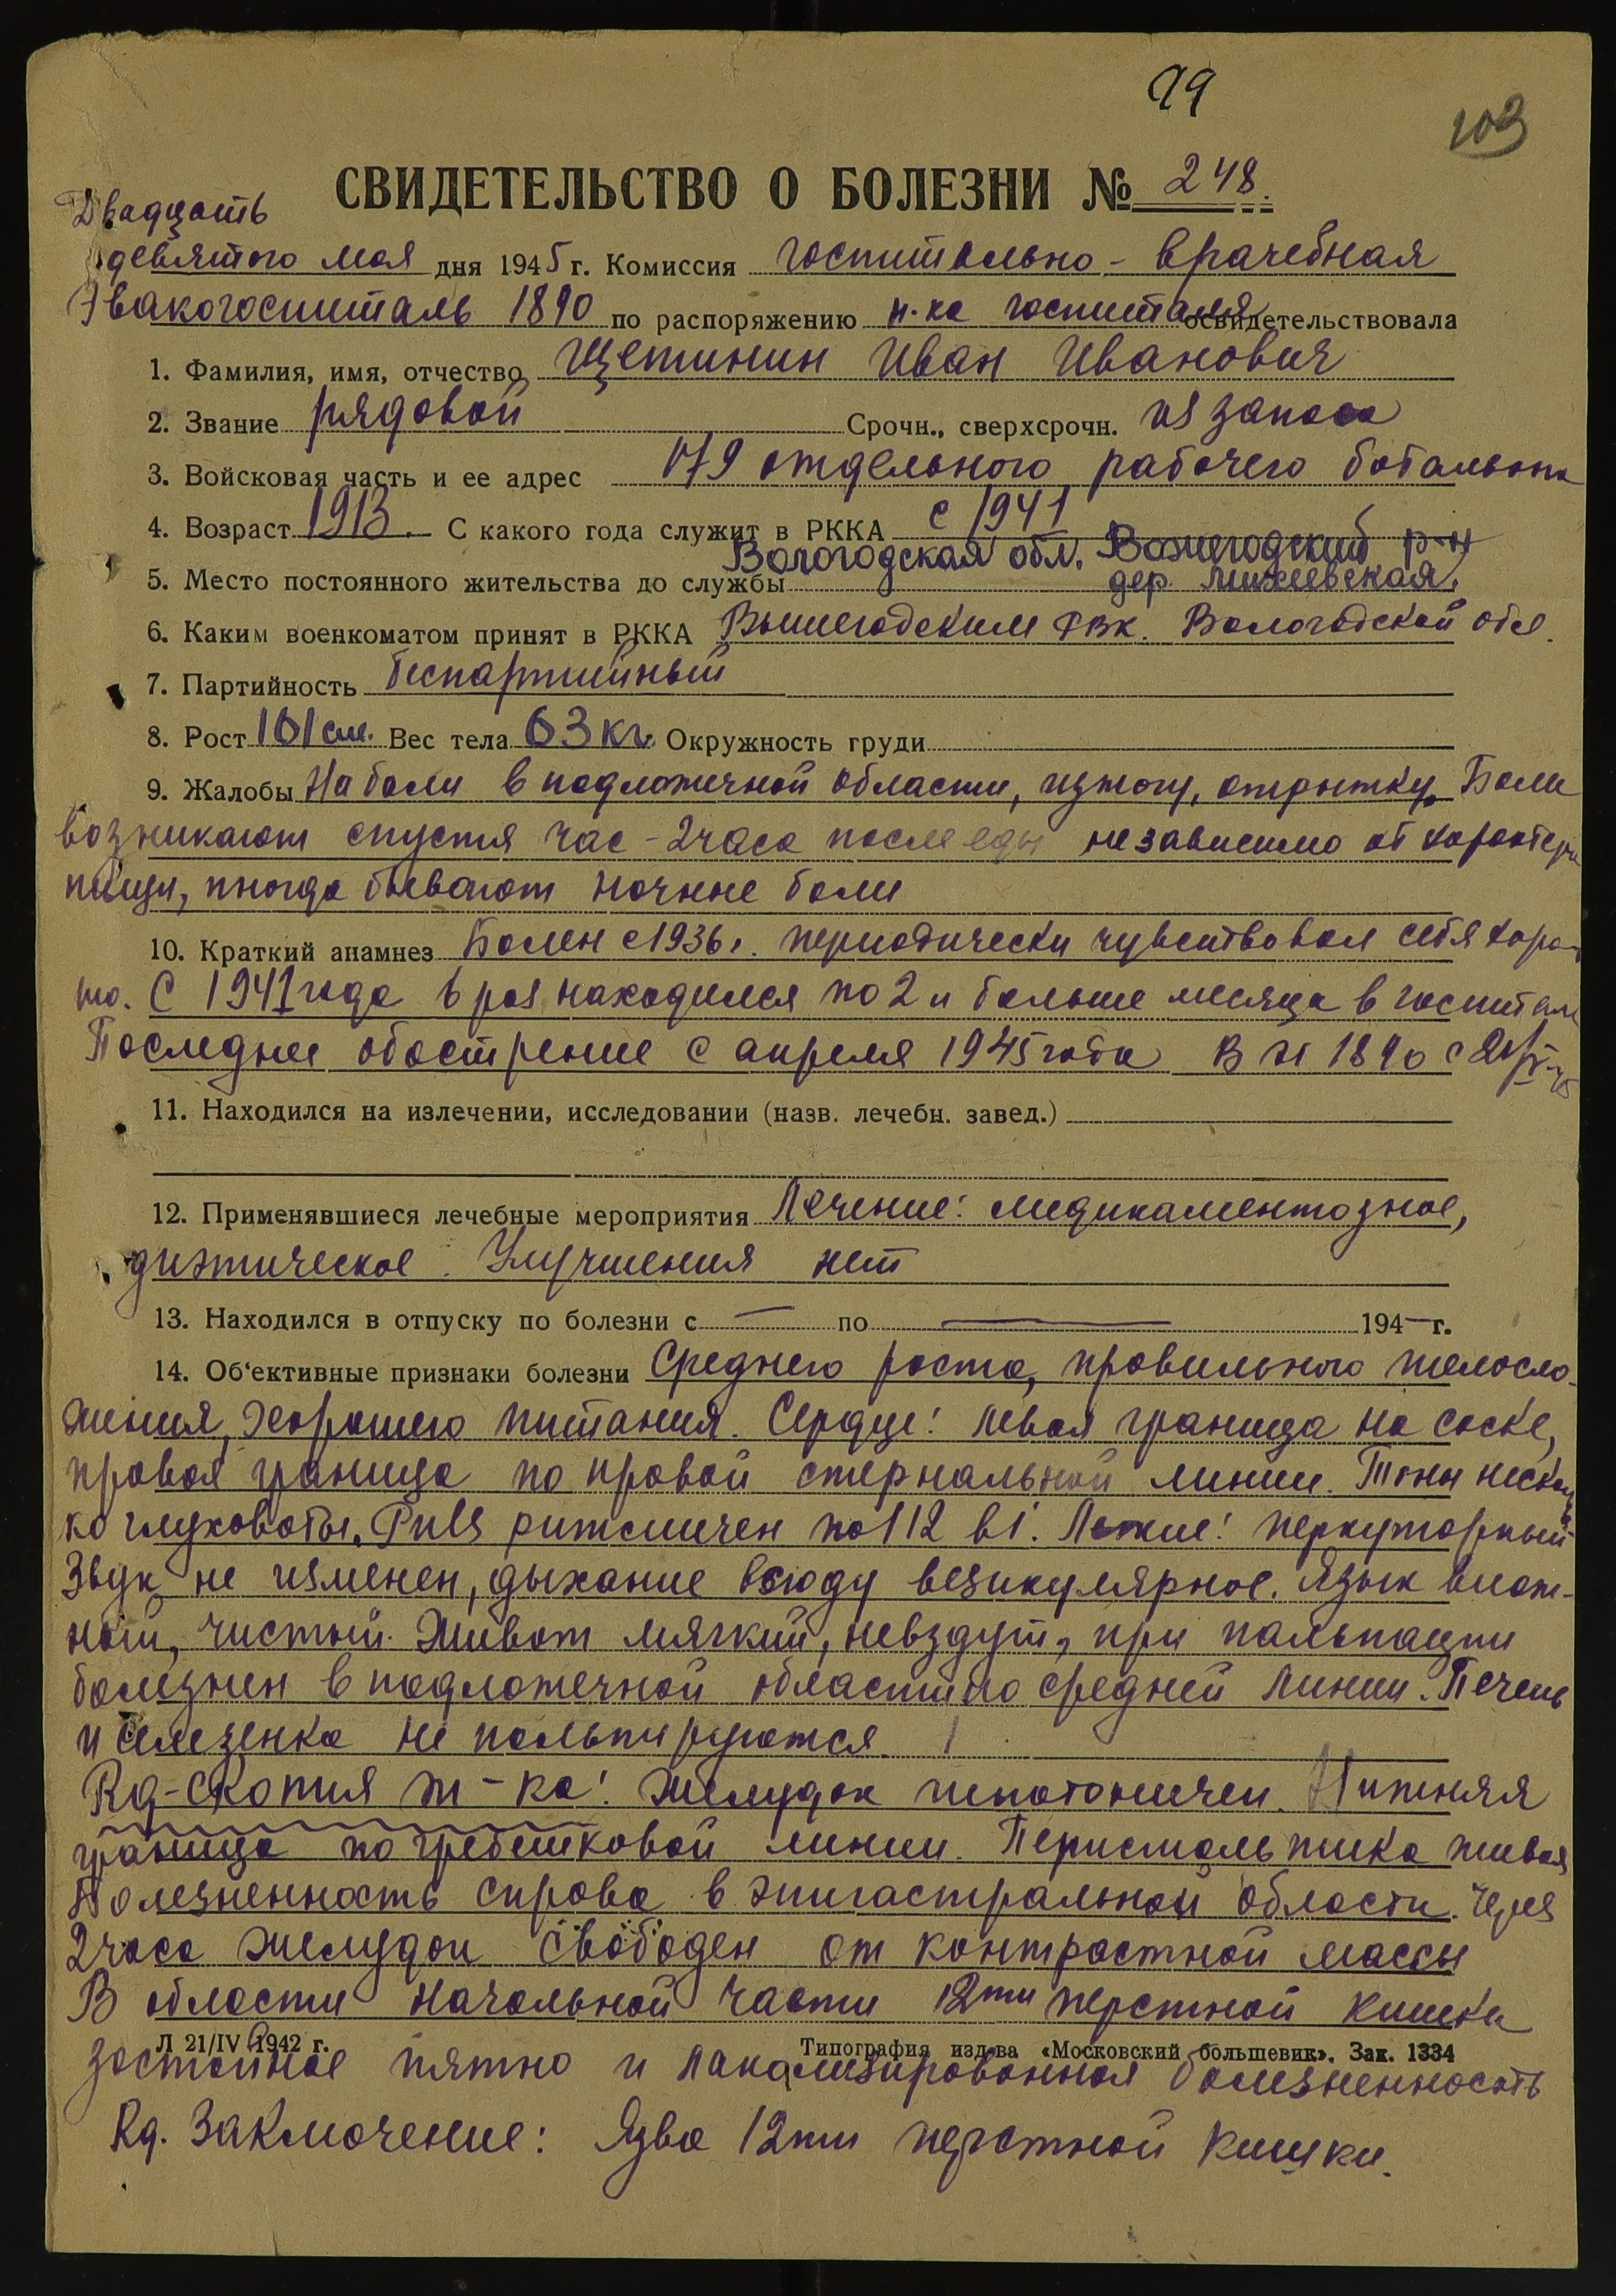 79
103
СВИДЕТЕЛЬСТВО О БОЛЕЗНИ № 248.
Двадцать
девятого мая дня 1945 г. Комиссия госпитально - врачебная
Эвакогоспиталь 1890 по распоряжению н-ка госпиталя освидетельствовала
1. Фамилия, имя, отчество Щетинин Иван Иванович
2. Звание рядовой Срочн., сверхсрочн. из запаса
3. Войсковая часть и ее адрес 179 отдельного рабочего батальона
4. Возраст 1913. С какого года служит в РККА с 1941
Вологодская обл. Вожегодский р-н
5. Место постоянного жительства до службы дер.
6. Каким военкоматом принят в РККА РВК. Вологодской обл.
7. Партийность беспартийный
8. Рост 161 см. Вес тела 63 кг. Окружность груди
9. Жалобы На боли в подложечной области, изжогу, отрыжку. Боли
возникают спустя час - 2 часа после еды независимо от характера
пищи, иногда бывают ночные боли
10. Краткий анамнез Болен с 1936 г. периодически чувствовал себя хорош
шо. С 1941 года 6 раз находился по 2 и больше месяца в госпитале
Последнее обострение с апреля 1945 года В ЭГ 1890 с
11. Находился на излечении, исследовании (назв. лечебн. завед.)
12. Применявшиеся лечебные мероприятия Лечение: медикаментозное,
диэтическое. Улучшения нет
13. Находился в отпуску по болезни с — по — 194— г.
14. Об'ективные признаки болезни Среднего роста, правильного телосло-
жения, хорошего питания. Сердце: левая граница на соске,
правая граница по правой стернальной линии. Тоны несколь
ко глуховаты. Puls ритмичен по 112 в 1'. Легкие: перкуторный
звук не изменен, дыхание всюду везикулярное. Язык влаж-
ный, чистый. Живот мягкий, невздут, при пальпации
болезнен в подложечной области по средней линии. Печень
и селезенка не пальпируются.
Rg-скопия ж-ка: Желудок гипотоничен. Нижняя
граница по гребешковой линии. Перистальтика живая
Болезненность справа в эпигастральной области. Через
2 часа желудок свободен от контрастной массы
В области начальной части 12ти перстной кишки
Л 21/IV 1942 г. Типография изд-ва «Московский большевик». Зак. 1334
застойное пятно и локализированная болезненность
Rg. Заключение: Язва 12ти перстной кишки.